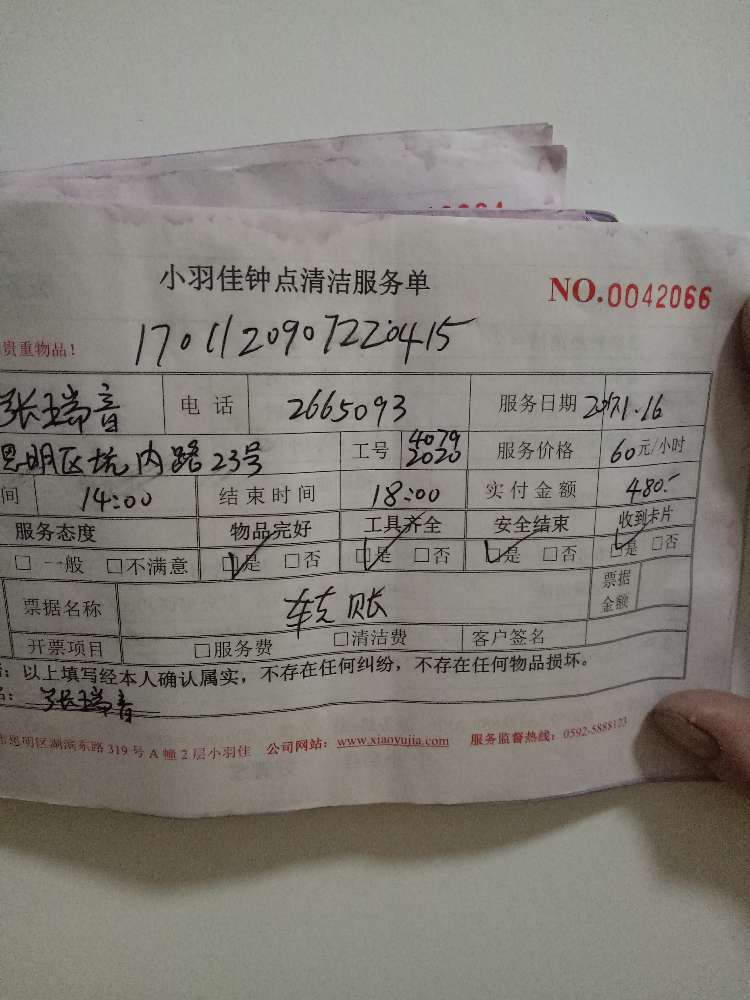 小羽佳钟点清洁服务单 NO.0042066
贵重物品！ 17011209072220415
张瑞音 电话 2665093 服务日期 2017.1.16
思明区坑内路23号 工号 4079 2020 服务价格 60元/小时
间 14:00 结束时间 18:00 实付金额 480.-
服务态度 物品完好 工具齐全 安全结束 收到卡片
□ 一般 □不满意 □是 □否 □是 □否 □是 □否 □是 □否
票据名称 转账 票据金额
开票项目 □服务费 □清洁费 客户签名
：以上填写经本人确认属实，不存在任何纠纷，不存在任何物品损坏。
名： 张瑞音
市思明区湖滨东路 319 号 A 幢 2 层小羽佳 公司网站：www.xiaoyujia.com 服务监督热线：0592-5888123